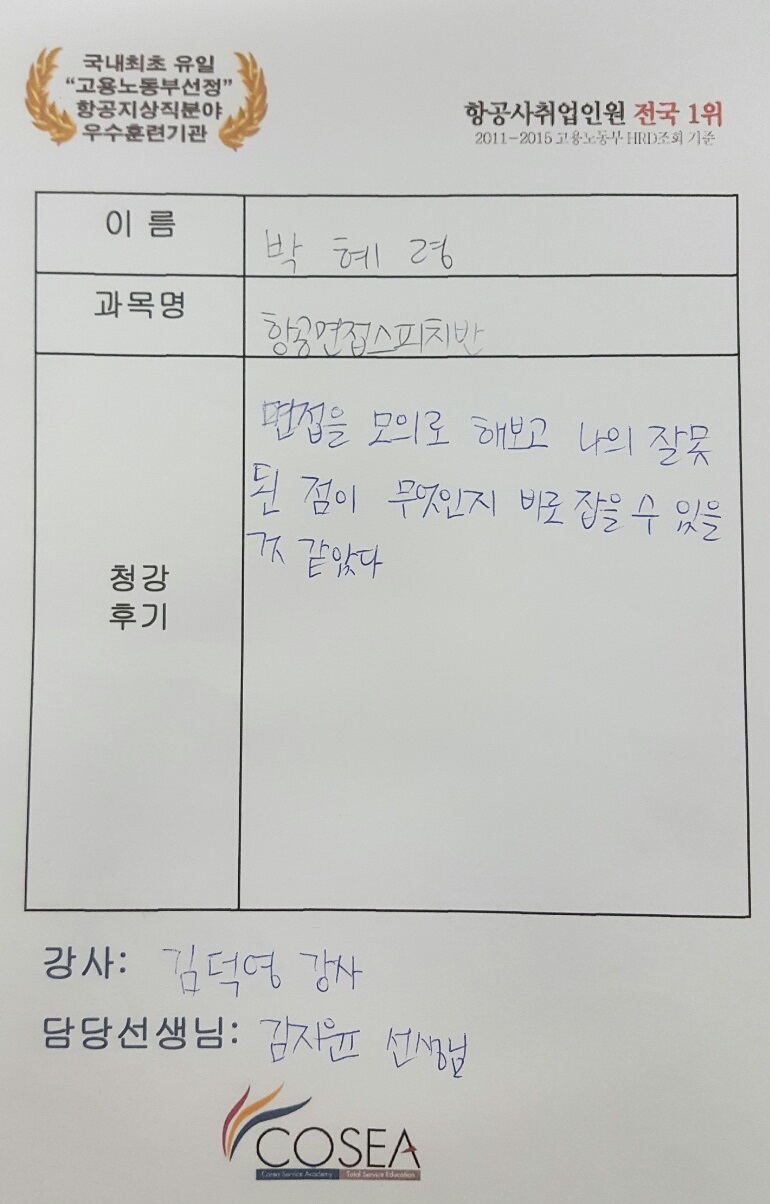 국내최초 유일
“고용노동부선정”
항공지상직분야
우수훈련기관
항공사취업인원 전국 1위
2011-2015 고용노동부 HRD조회 기준
이 름
박 혜 령
과목명
항공면접스피치반
청강
후기
면접을 모의로 해보고 나의 잘못
된 점이 무엇인지 바로 잡을 수 있을
것 같았다
강사: 김덕영 강사
담당선생님: 김지윤 선생님
COSEA
Corea Service Academy Total Service Education